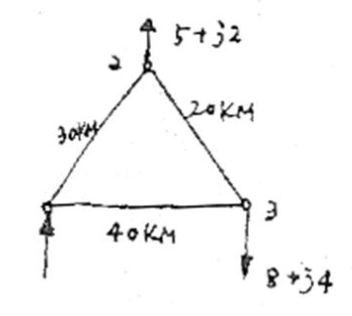 5+j2
2
30KM
20KM
3
40KM
8+j4